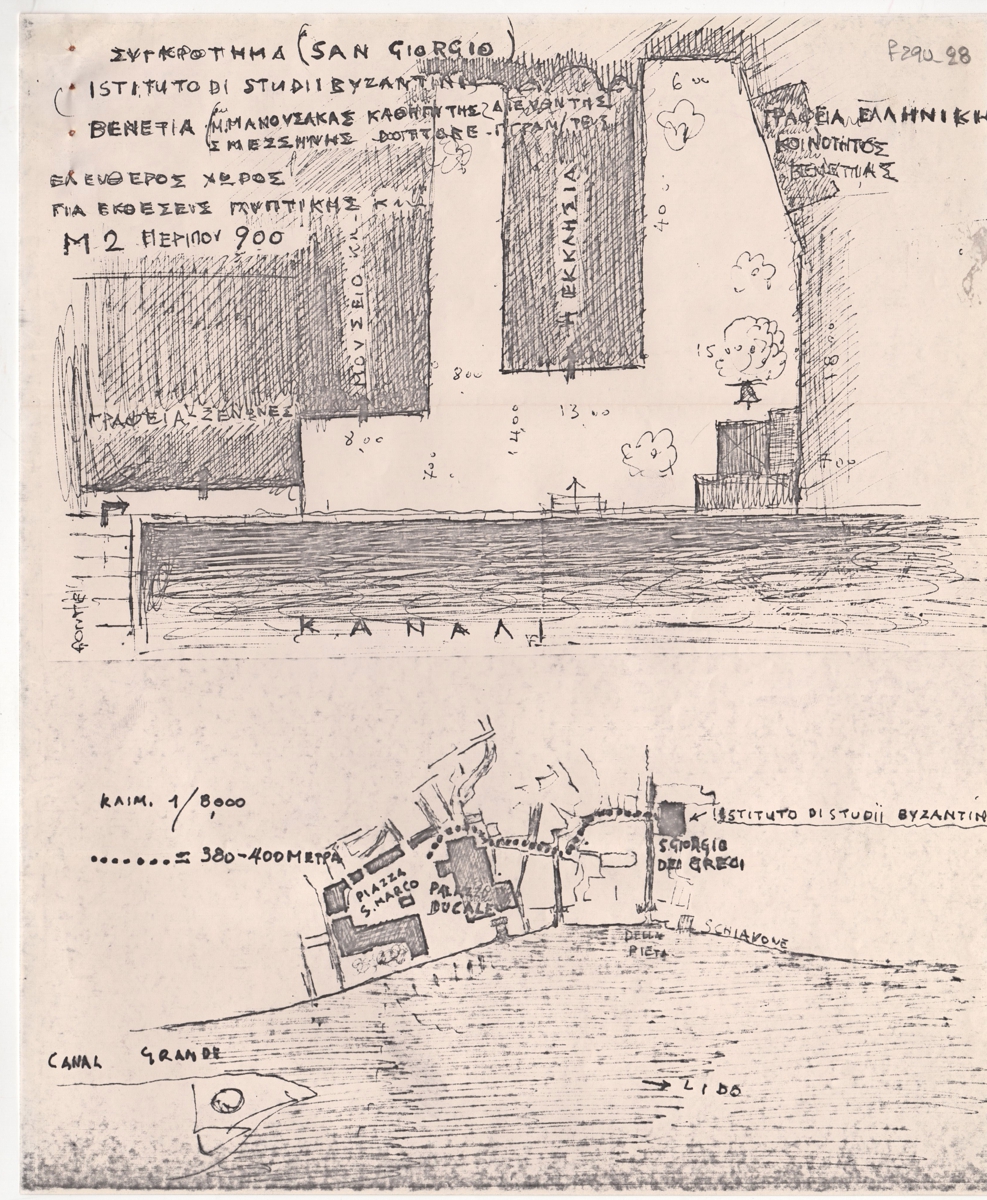 ΣΥΓΚΡΟΤΗΜΑ (SAN GIORGIO)
P290_28
ISTITUTO DI STUDII BYZANTINI
ΒΕΝΕΤΙΑ (Μ ΜΑΝΟΥΣΑΚΑΣ ΚΑΘΗΓΗΤΗΣ ΔΙΕΥΘΝΤΗΣ
DOTTORE - ΓΡΑΜ/ΤΕΥΣ
ΕΛΕΥΘΕΡΟΣ ΧΩΡΟΣ
ΓΙΑ ΕΚΘΕΣΕΙΣ ΓΛΥΠΤΙΚΗΣ
Μ 2 ΠΕΡΙΠΟΥ 900
ΓΡΑΦΕΙΑ ΕΛΛΗΝΙΚΗ
ΚΟΙΝΟΤΗΤΟΣ
ΒΕΝΕΤΙΑΣ
6 00
40
ΜΟΥΣΕΙΟ
Η ΕΚΚΛΗΣΙΑ
15 00
18 00
8 00
13 00
14,00
8,00
7 00
ΓΡΑΦΕΙΑ - ΞΕΝΩΝΕΣ
PONTE
ΚΑΝΑΛΙ
ΚΛΙΜ. 1/8,000
........= 380-400 ΜΕΤΡΑ
ISTITUTO DI STUDII BYZANTIN
S. GIORGIO
DEI GRECI
PIAZZA
S. MARCO
PALAZZO
DUCALE
DELLA
PIETA
SCHIAVONE
CANAL GRANDE
→ LIDO